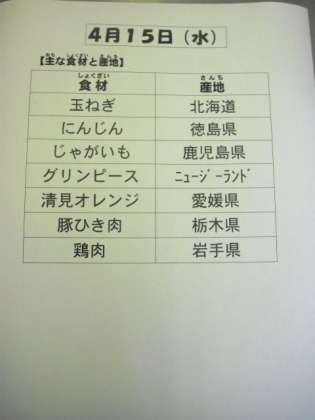 4月15日（水）
【主な食材と産地】
食材 産地
玉ねぎ 北海道
にんじん 徳島県
じゃがいも 鹿児島県
グリンピース ﾆｭｰｼﾞｰﾗﾝﾄﾞ
清見オレンジ 愛媛県
豚ひき肉 栃木県
鶏肉 岩手県